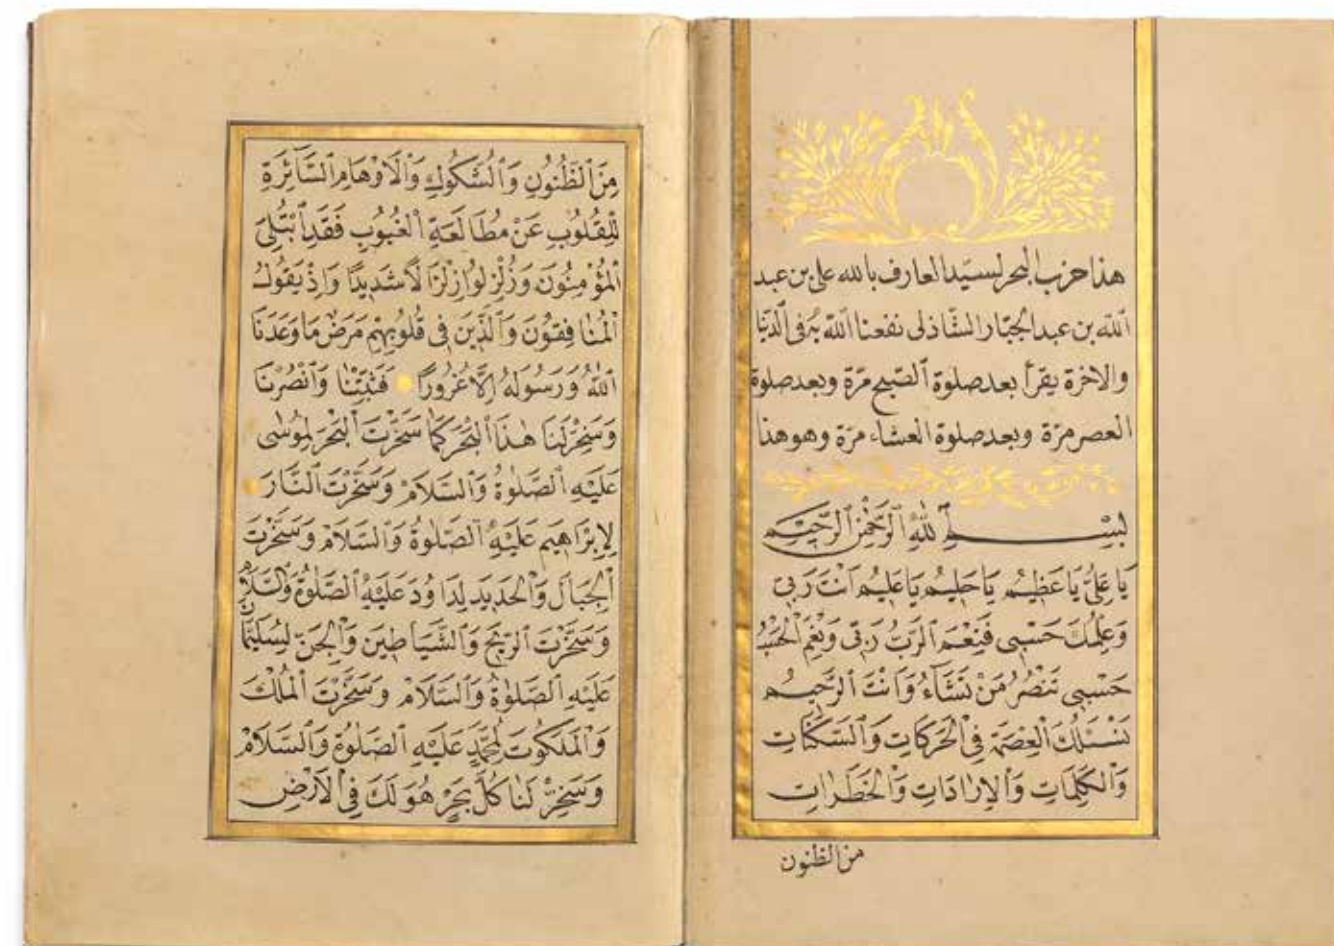 هذا حزب البحر لسيّد العارف بالله على بن عبد
الله بن عبد الجبّار الشّاذلى نفعنا الله به فى الدّنيا
والاخرة يقرأ بعد صلوة الصّبح مرّة وبعد صلوة
العصر مرّة وبعد صلوة العشاء مرّة وهو هذا
بِسْمِ اللهِ الرَّحْمٰنِ الرَّحِيمِ
يَا عَلِىُّ يَا عَظِيمُ يَا حَلِيمُ يَا عَلِيمُ اَنْتَ رَبِّى
وَعِلْمُكَ حَسْبِى فَنِعْمَ الرَّبُّ رَبِّى وَنِعْمَ الْحَسْبُ
حَسْبِى تَنْصُرُ مَنْ تَشَاءُ وَاَنْتَ الرَّحِيمُ
نَسْئَلُكَ الْعِصْمَةَ فِى الْحَرَكَاتِ وَالسَّكَنَاتِ
وَالْكَلِمَاتِ وَالْاِرَادَاتِ وَالْخَطَرَاتِ
من الظنون
مِنَ الظُّنُونِ وَالشُّكُوكِ وَالْاَوْهَامِ السَّاتِرَةِ
لِلْقُلُوبِ عَنْ مُطَالَعَةِ الْغُيُوبِ فَقَدِ ابْتُلِىَ
الْمُؤْمِنُونَ وَزُلْزِلُوا زِلْزَالًا شَدِيدًا وَاِذْ يَقُولُ
الْمُنَافِقُونَ وَالَّذِينَ فِى قُلُوبِهِمْ مَرَضٌ مَا وَعَدَنَا
اللهُ وَرَسُولُهُ اِلَّا غُرُورًا فَثَبِّتْنَا وَانْصُرْنَا
وَسَخِّرْ لَنَا هٰذَا الْبَحْرَ كَمَا سَخَّرْتَ الْبَحْرَ لِمُوسٰى
عَلَيْهِ الصَّلٰوةُ وَالسَّلَامُ وَسَخَّرْتَ النَّارَ
لِاِبْرَاهِيمَ عَلَيْهِ الصَّلٰوةُ وَالسَّلَامُ وَسَخَّرْتَ
الْجِبَالَ وَالْحَدِيدَ لِدَاوُدَ عَلَيْهِ الصَّلٰوةُ وَالسَّلَامُ
وَسَخَّرْتَ الرِّيحَ وَالشَّيَاطِينَ وَالْجِنَّ لِسُلَيْمَانَ
عَلَيْهِ الصَّلٰوةُ وَالسَّلَامُ وَسَخَّرْتَ الْمُلْكَ
وَالْمَلَكُوتَ لِمُحَمَّدٍ عَلَيْهِ الصَّلٰوةُ وَالسَّلَامُ
وَسَخِّرْ لَنَا كُلَّ بَحْرٍ هُوَ لَكَ فِى الْاَرْضِ